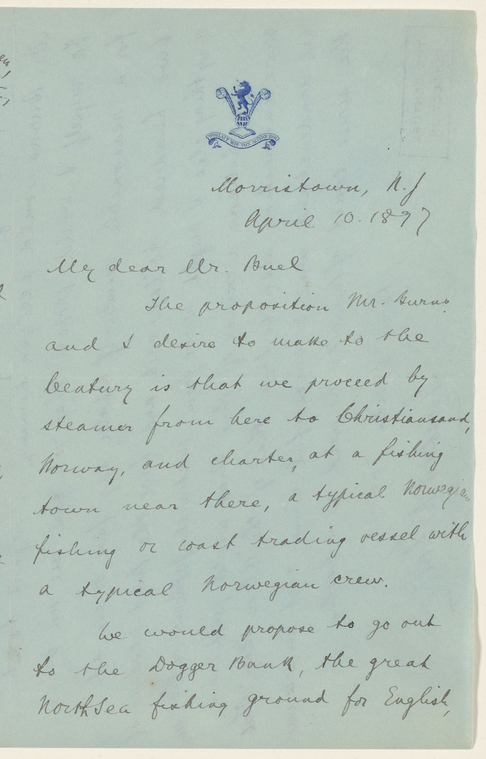 Morristown, N.J
April 10. 1897
My dear Mr. Buel
The proposition Mr. Burns
and I desire to make to the
Century is that we proceed by
steamer from here to Christiansand,
Norway, and charter, at a fishing
town near there, a typical Norwegian
fishing or coast trading vessel with
a typical Norwegian crew.
We would propose to go out
to the Dogger Bank, the great
North Sea fishing ground for English,